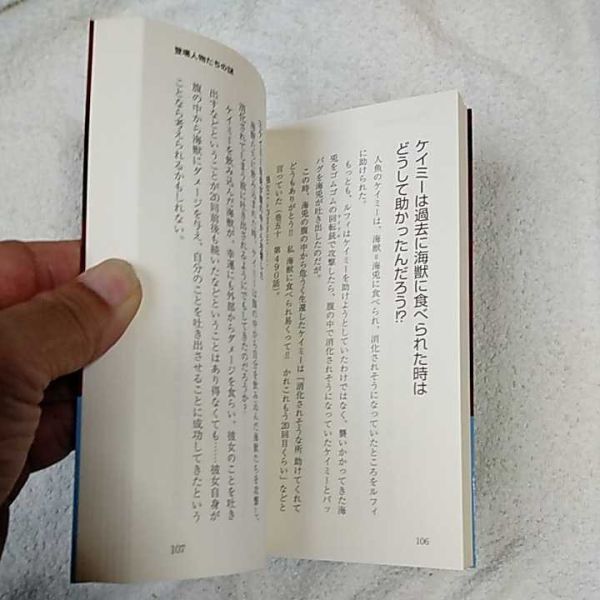 ケイミーは過去に海獣に食べられた時は
どうして助かったんだろう!?
人魚のケイミーは、海獣＝海兎に食べられ、消化されそうになっていたところをルフィ
に助けられた。
もっとも、ルフィはケイミーを助けようとしていたわけではなく、襲いかかってきた海
兎をゴムゴムの回転銃で攻撃したら、腹の中で消化されそうになっていたケイミーとパッ
パグを海兎が吐き出したのだが。
この時、海兎の腹の中から危うく生還したケイミーは「消化されそうな所助けてくれて
どうもありがとう!! 私海獣に食べられ易くって!! かれこれもう20回目くらい」などと
言っていた（巻五十 第490話）。
106
登場人物たちの謎
ケイミーは腹の中から自分を飲み込んだ海獣たちを攻撃して、
消化されてしまう前に吐き出されるようにでもしてきたのだろうか?
ケイミーを飲み込んだ海獣が、幸運にも外部からダメージを食らい、彼女のことを吐き
出すなどということが20回前後も続いたなどということはあり得なくても……彼女自身が
腹の中から海獣にダメージを与え、自分のことを吐き出させることに成功してきたという
ことなら考えられるかもしれない。
107